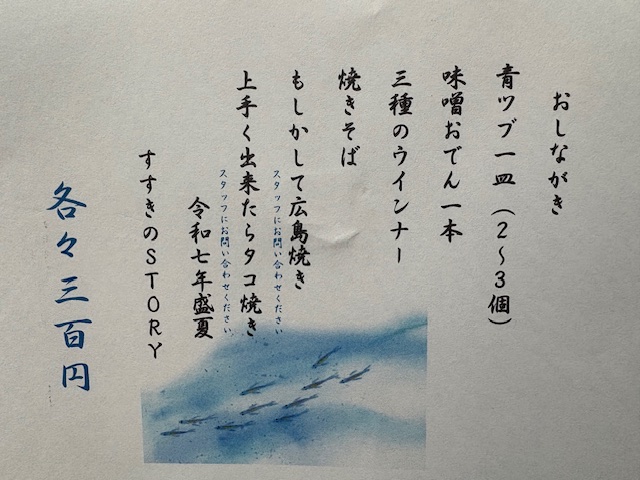 おしながき
青ツブ一皿（2～3個）
味噌おでん一本
三種のウインナー
焼きそば
もしかして広島焼き
スタッフにお問い合わせください
上手く出来たらタコ焼き
スタッフにお問い合わせください
令和七年盛夏
すすきのSTORY
各々三百円